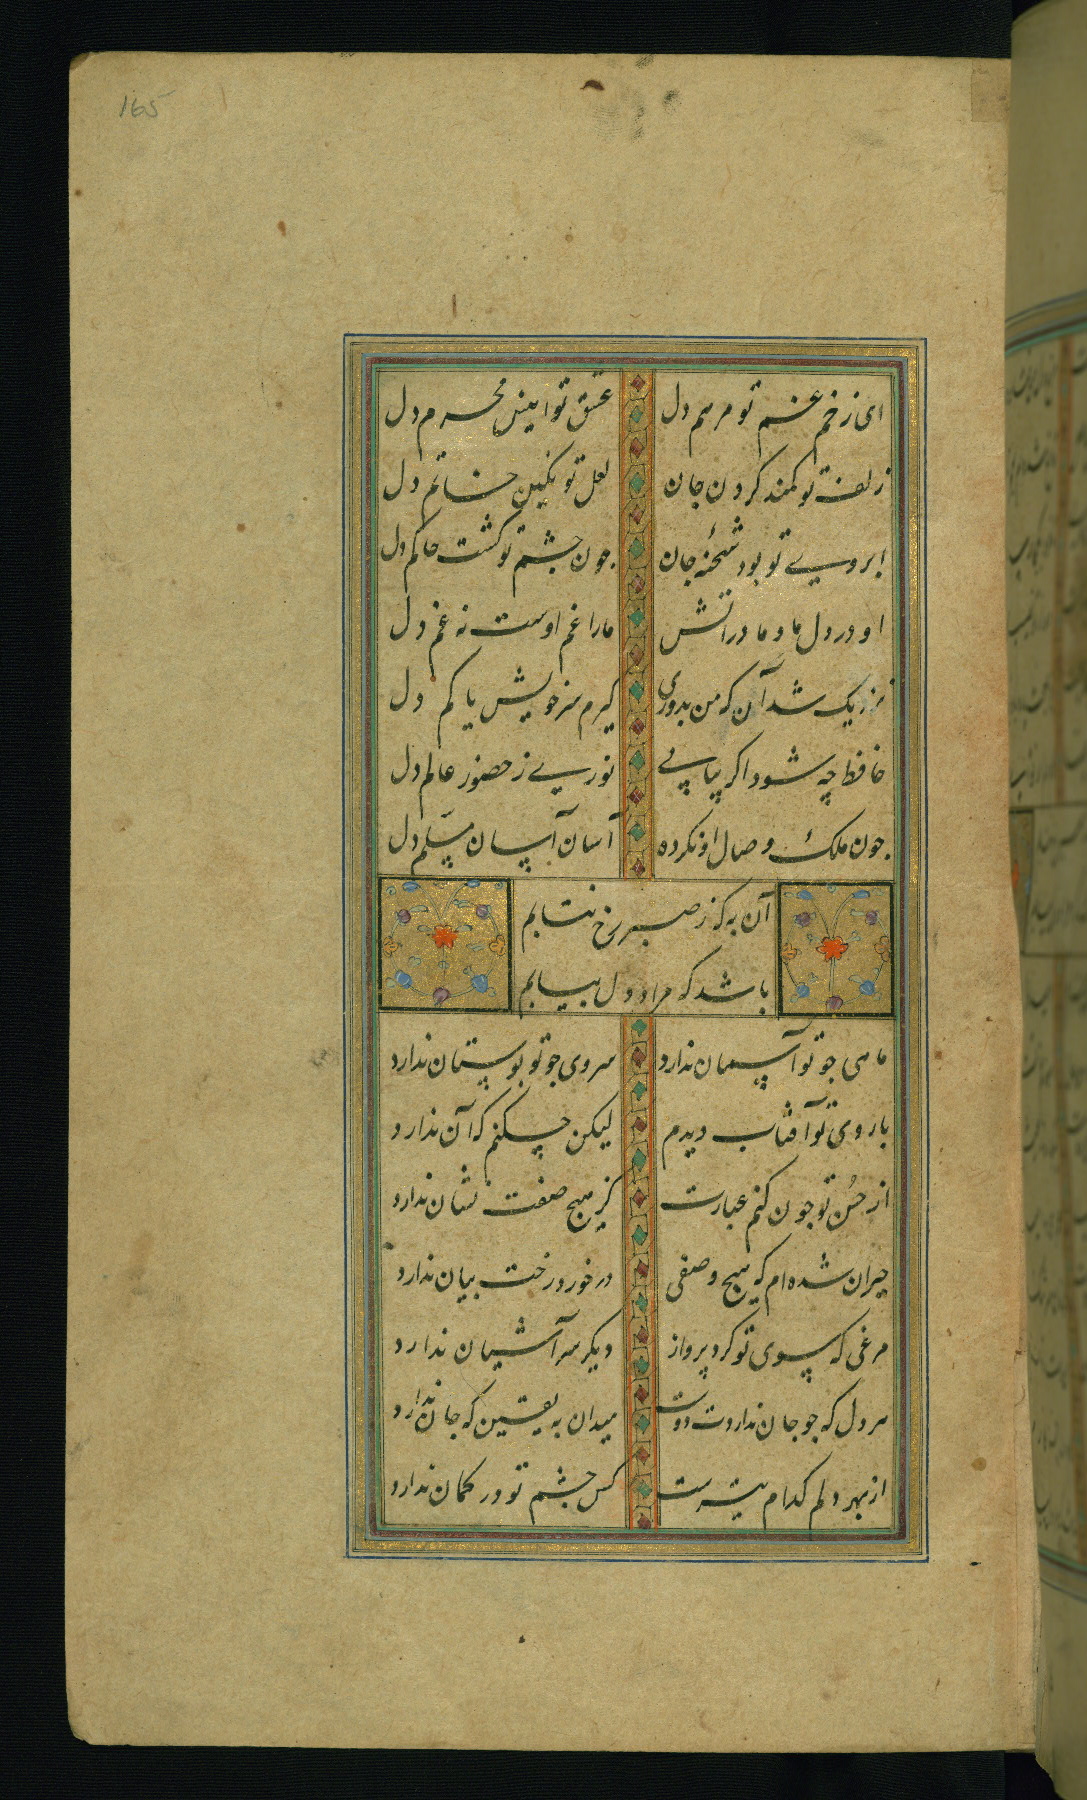 165
ای زخم غم تو مرهم دل عشق تو انیس محرم دل
زلف تو کمند کردن جان لعل تو نکین خاتم دل
ابروی تو بود شحنه جان جون جشم تو کشت حاکم دل
او در دل ما و ما در آتش ما را غم اوست نه غم دل
نزدیک شد آن که من بدوری کیرم سر خویش یا کم دل
حافظ چه شود اکر پیاپی نوری ز حضور عالم دل
جون ملک وصال او نکرده آسان آسان مسلم دل
آن به که ز صبر رخ نتابم
باشد که مراد دل بیابم
ماهی جو تو آسمان ندارد سروی جو تو بوستان ندارد
با روی تو آفتاب دیدم لیکن چکنم که آن ندارد
از حُسن تو جون کنم عبارت کز هیچ صفت نشان ندارد
حیران شده‌ام که هیچ وصفی در خورد رخت بیان ندارد
مرغی که بسوی تو کرد پرواز دیکر سر آشیان ندارد
هر دل که جو جان نداردت دوست میدان به یقین که جان ندارد
از بهر دلم کدام تیرست کس جشم تو در کمان ندارد